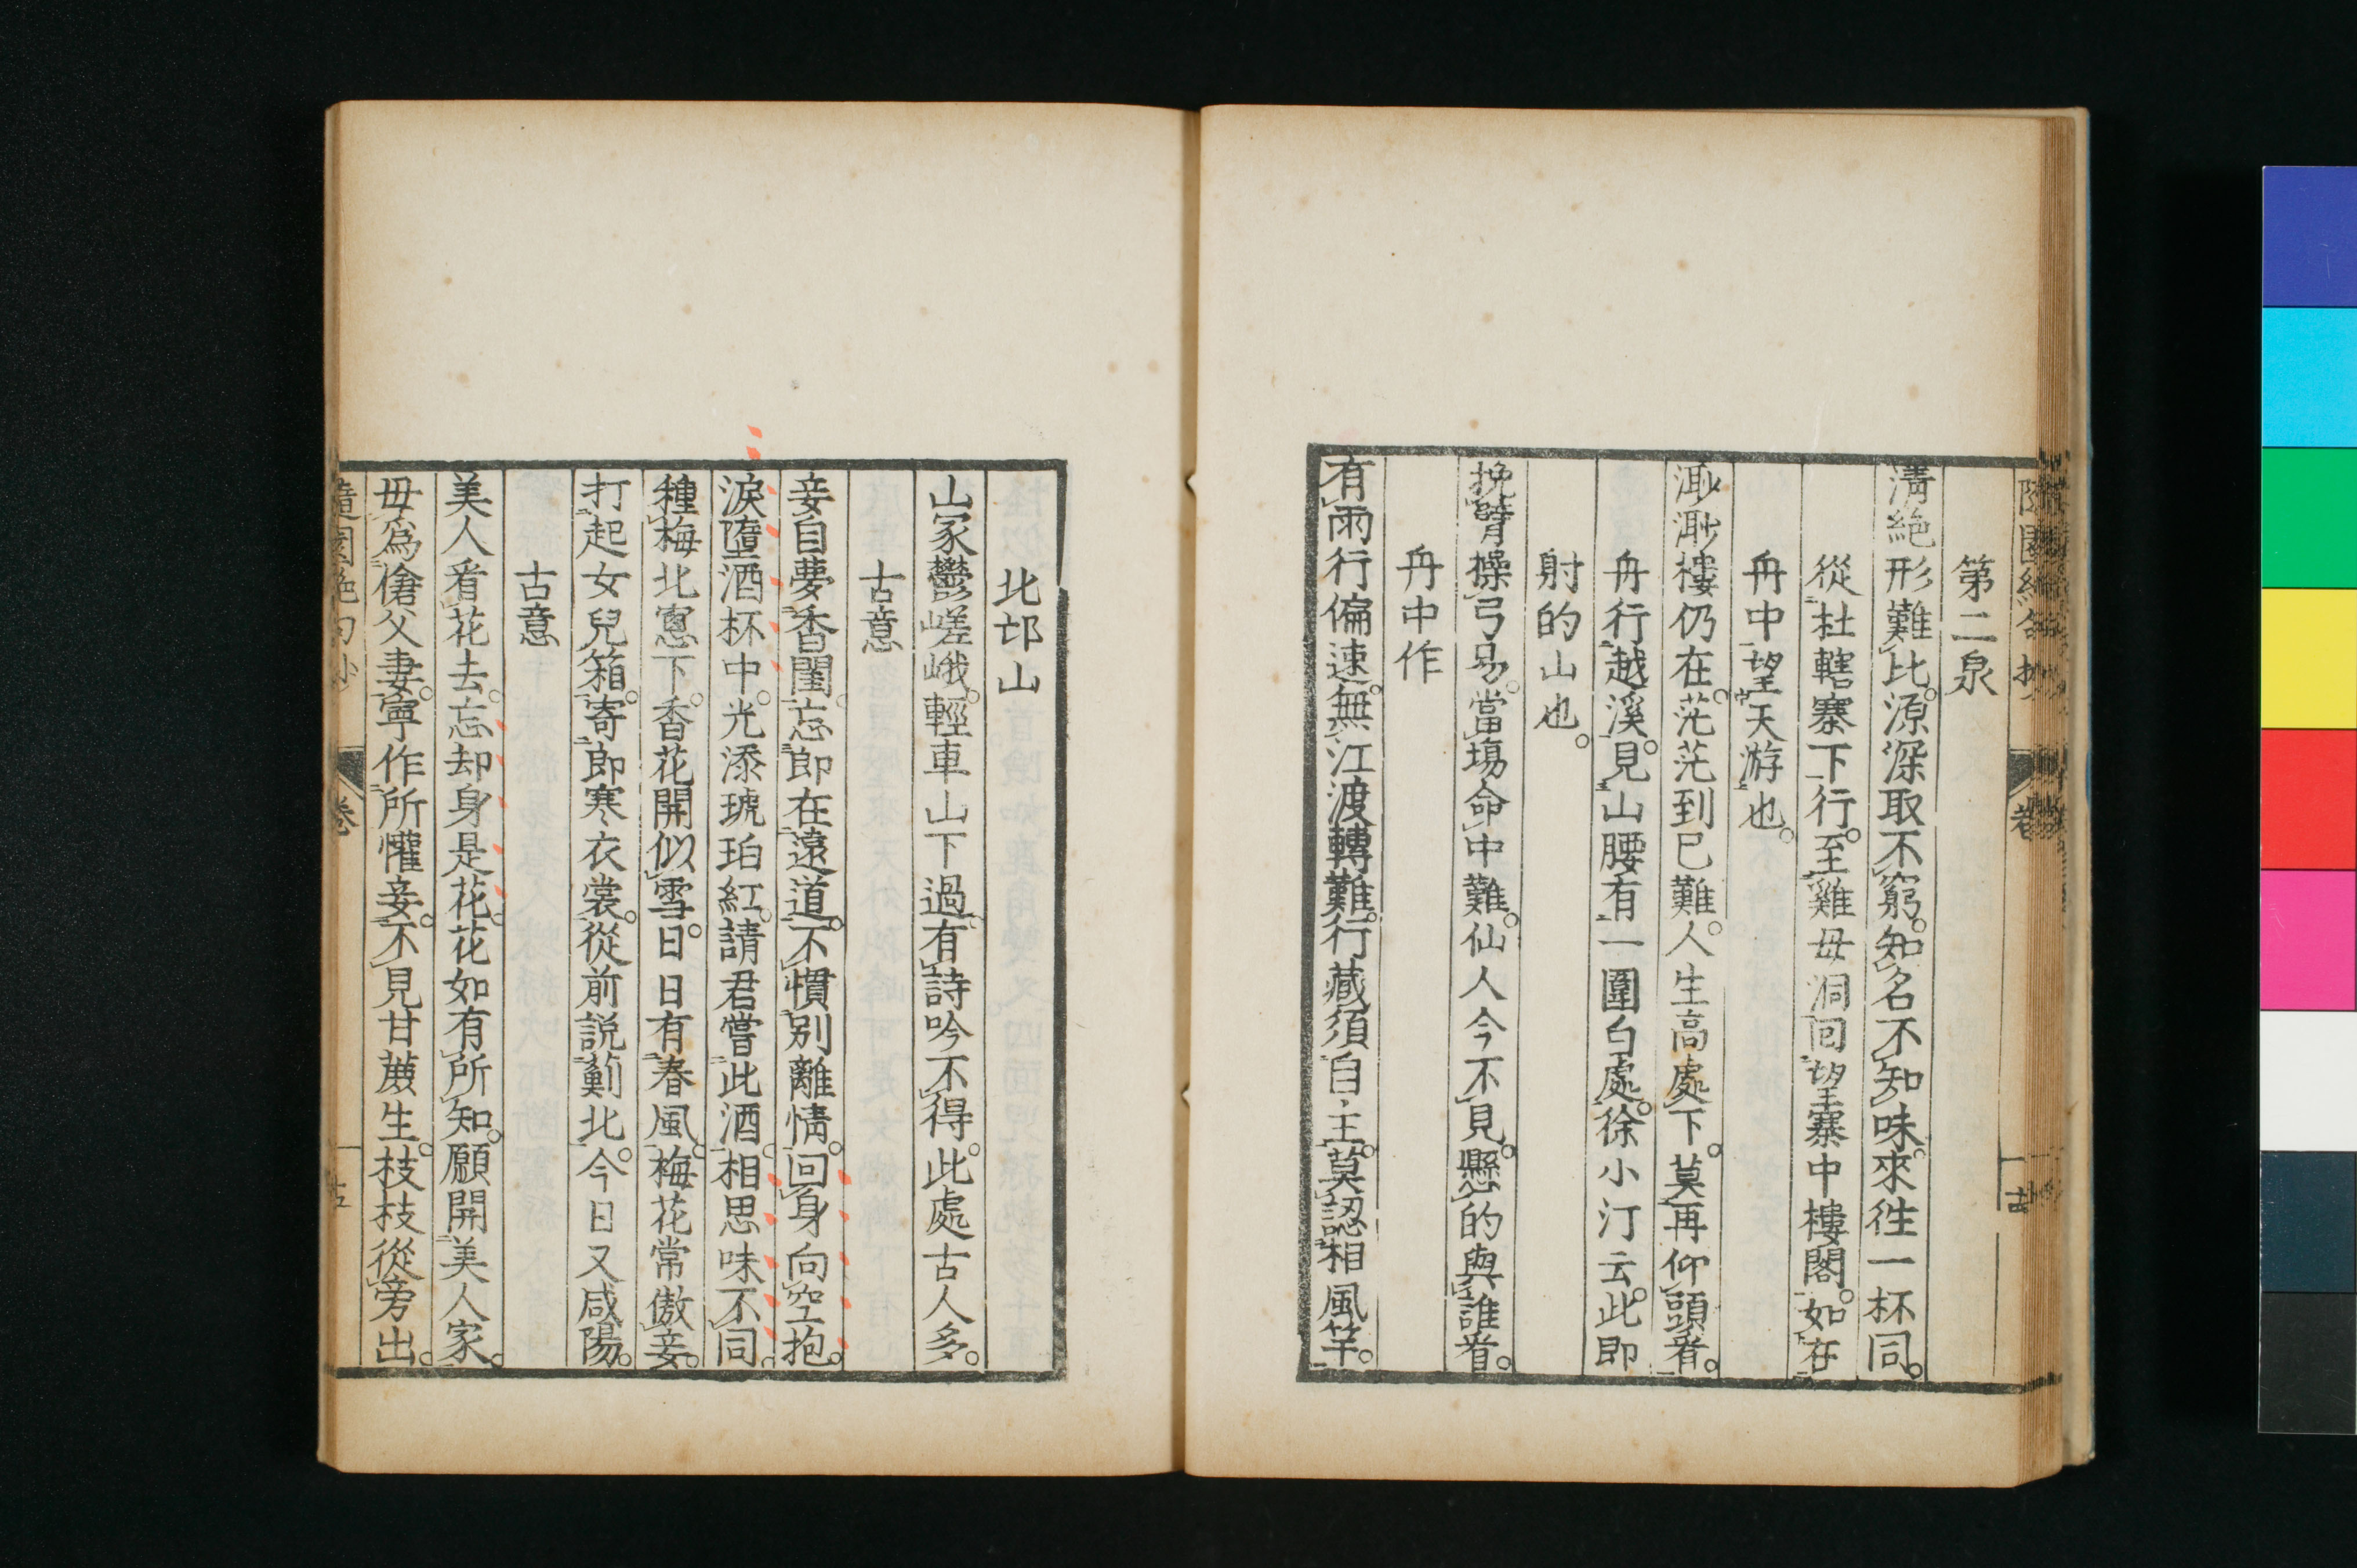 第二泉
清絶形難比。源深取不窮。知名不知味。來往一杯同。
從杜轄寨下行。至雞毋洞回望寨中樓閣。如在
舟中望天游也。
渺渺樓仍在。茫茫到已難。人生高處下。莫再仰頭看。
舟行越溪。見山腰有一圍白處。徐小汀云。此即
射的山也。
挽臂操弓易。當場命中難。仙人今不見。懸的與誰看。
舟中作
有雨行偏速。無江渡轉難。行藏須自主。莫認相風竿。
北邙山
山冢鬱嵯峨。輕車山下過。有詩吟不得。此處古人多。
古意
妾自夢香閨。忘郎在遠道。不慣別離情。回身向空抱。
淚墮酒杯中。光添琥珀紅。請君嘗此酒。相思味不同。
種梅北窻下。香花開似雪。日日有春風。梅花常傲妾。
打起女兒箱。寄郎寒衣裳。從前説薊北。今日又咸陽。
古意
美人看花去。忘却身是花。花如有所知。願開美人家。
毋爲傖父妻。寧作所懽妾。不見甘蔗生。枝枝從旁出。
隨園絶句抄 卷 十五